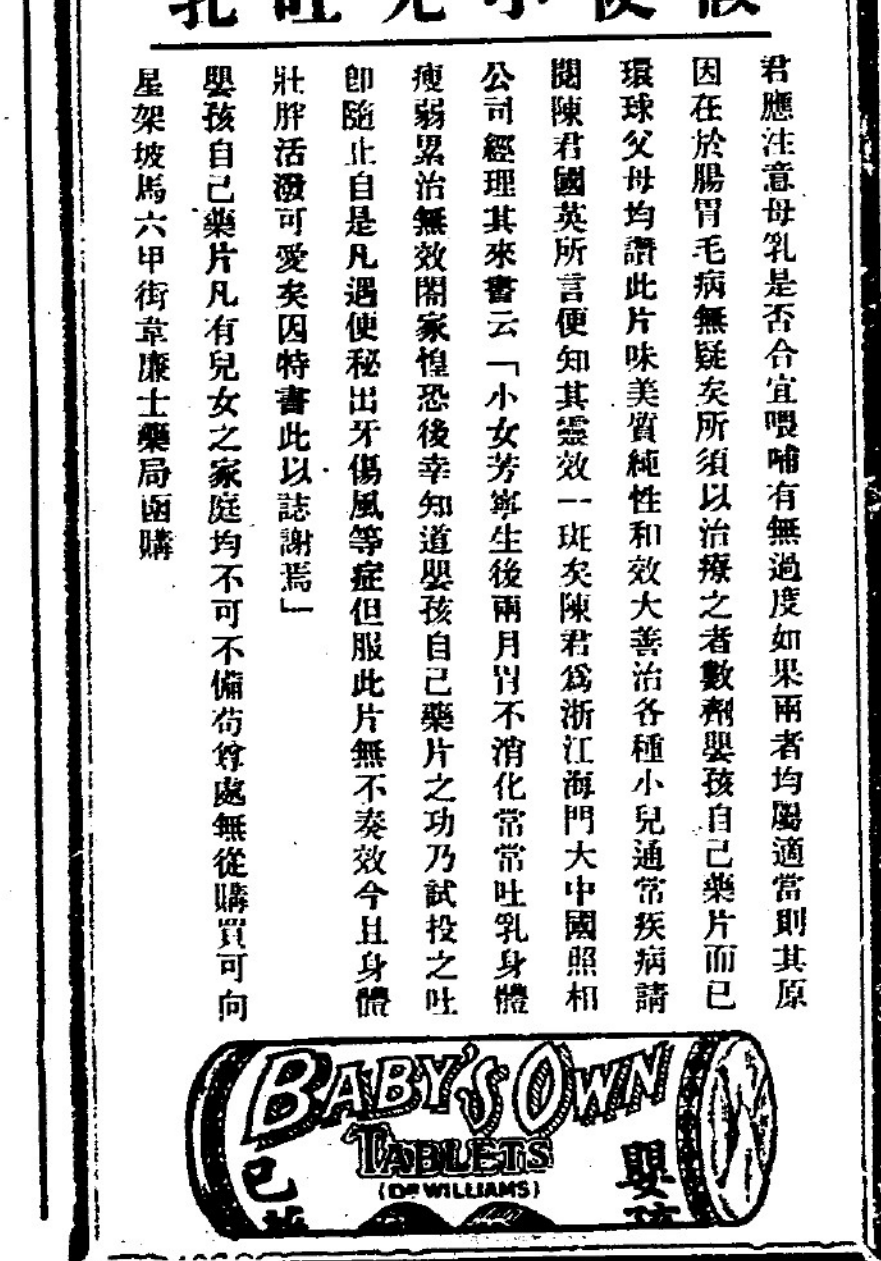 假使小兒吐乳
君應注意母乳是否合宜喂哺有無過度如果兩者均屬適當則其原
因在於腸胃毛病無疑矣所須以治療之者數劑嬰孩自己藥片而已
環球父母均讚此片味美質純性和效大善治各種小兒通常疾病請
閱陳君國英所言便知其靈效一斑矣陳君爲浙江海門大中國照相
公司經理其來書云「小女芳寧生後兩月胃不消化常常吐乳身體
瘦弱累治無效閤家惶恐後幸知道嬰孩自己藥片之功乃試投之吐
卽隨止自是凡遇便秘出牙傷風等症但服此片無不奏效今且身體
壯胖活潑可愛矣因特書此以誌謝焉」
嬰孩自己藥片凡有兒女之家庭均不可不備苟尊處無從購買可向
星架坡馬六甲街韋廉士藥局函購
BABY'S OWN
TABLETS
(DR WILLIAMS)
嬰孩
己藥